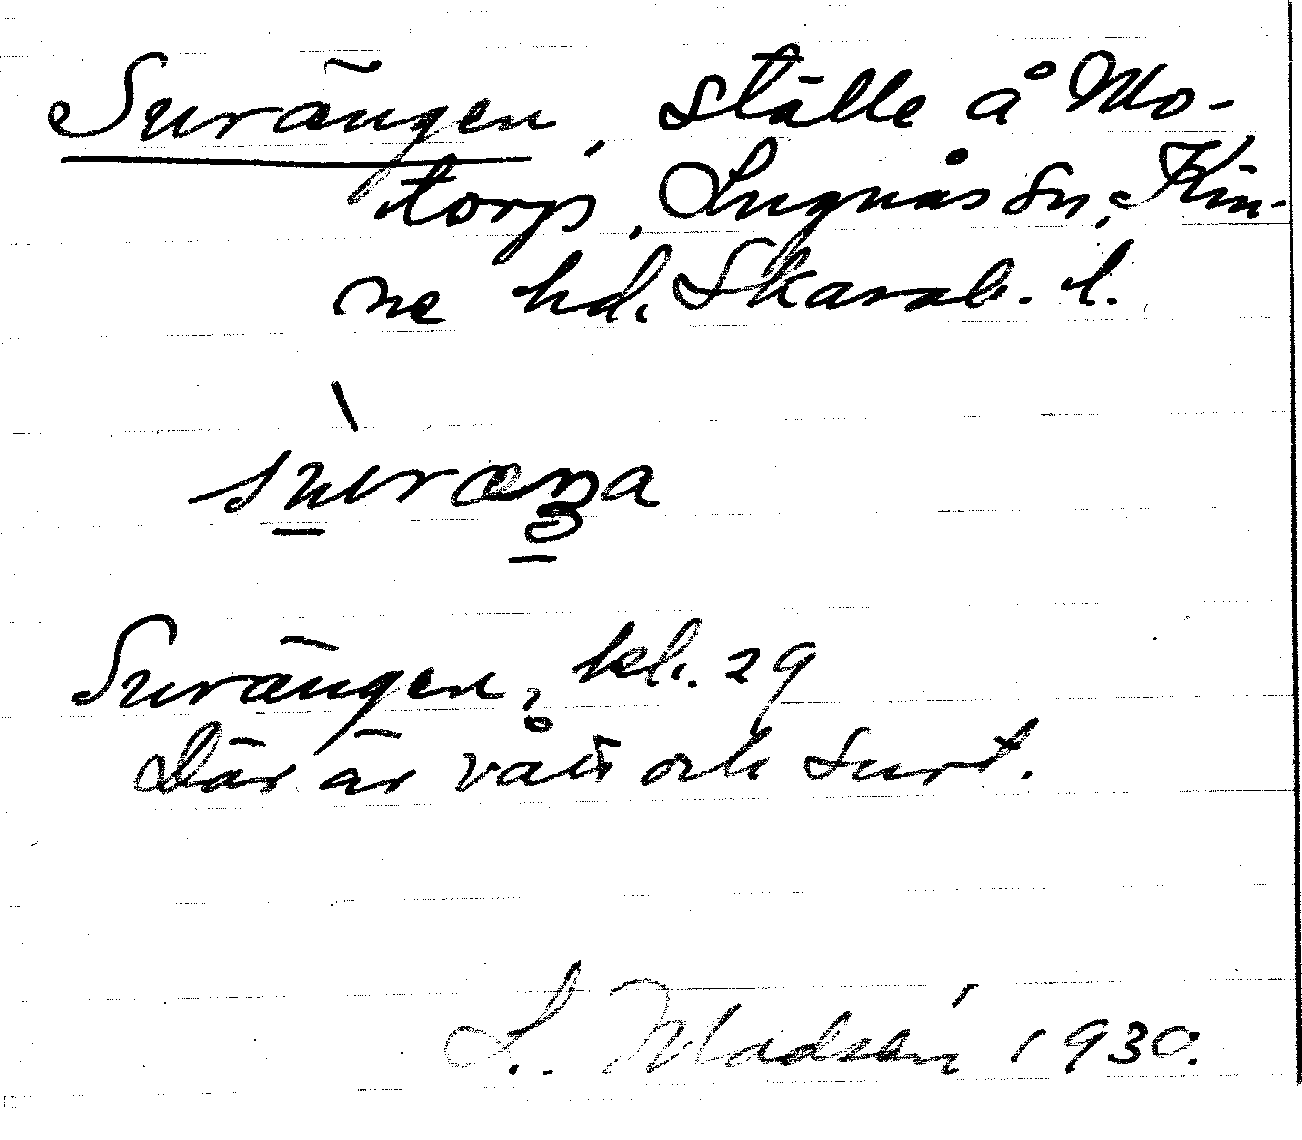 Surängen, ställe å Mo-
torp, Lugnås sn, Kin-
ne hd. Skarab. l.
Surängen, kh. 29
Där är vått och surt.
L. Madsén 1930.